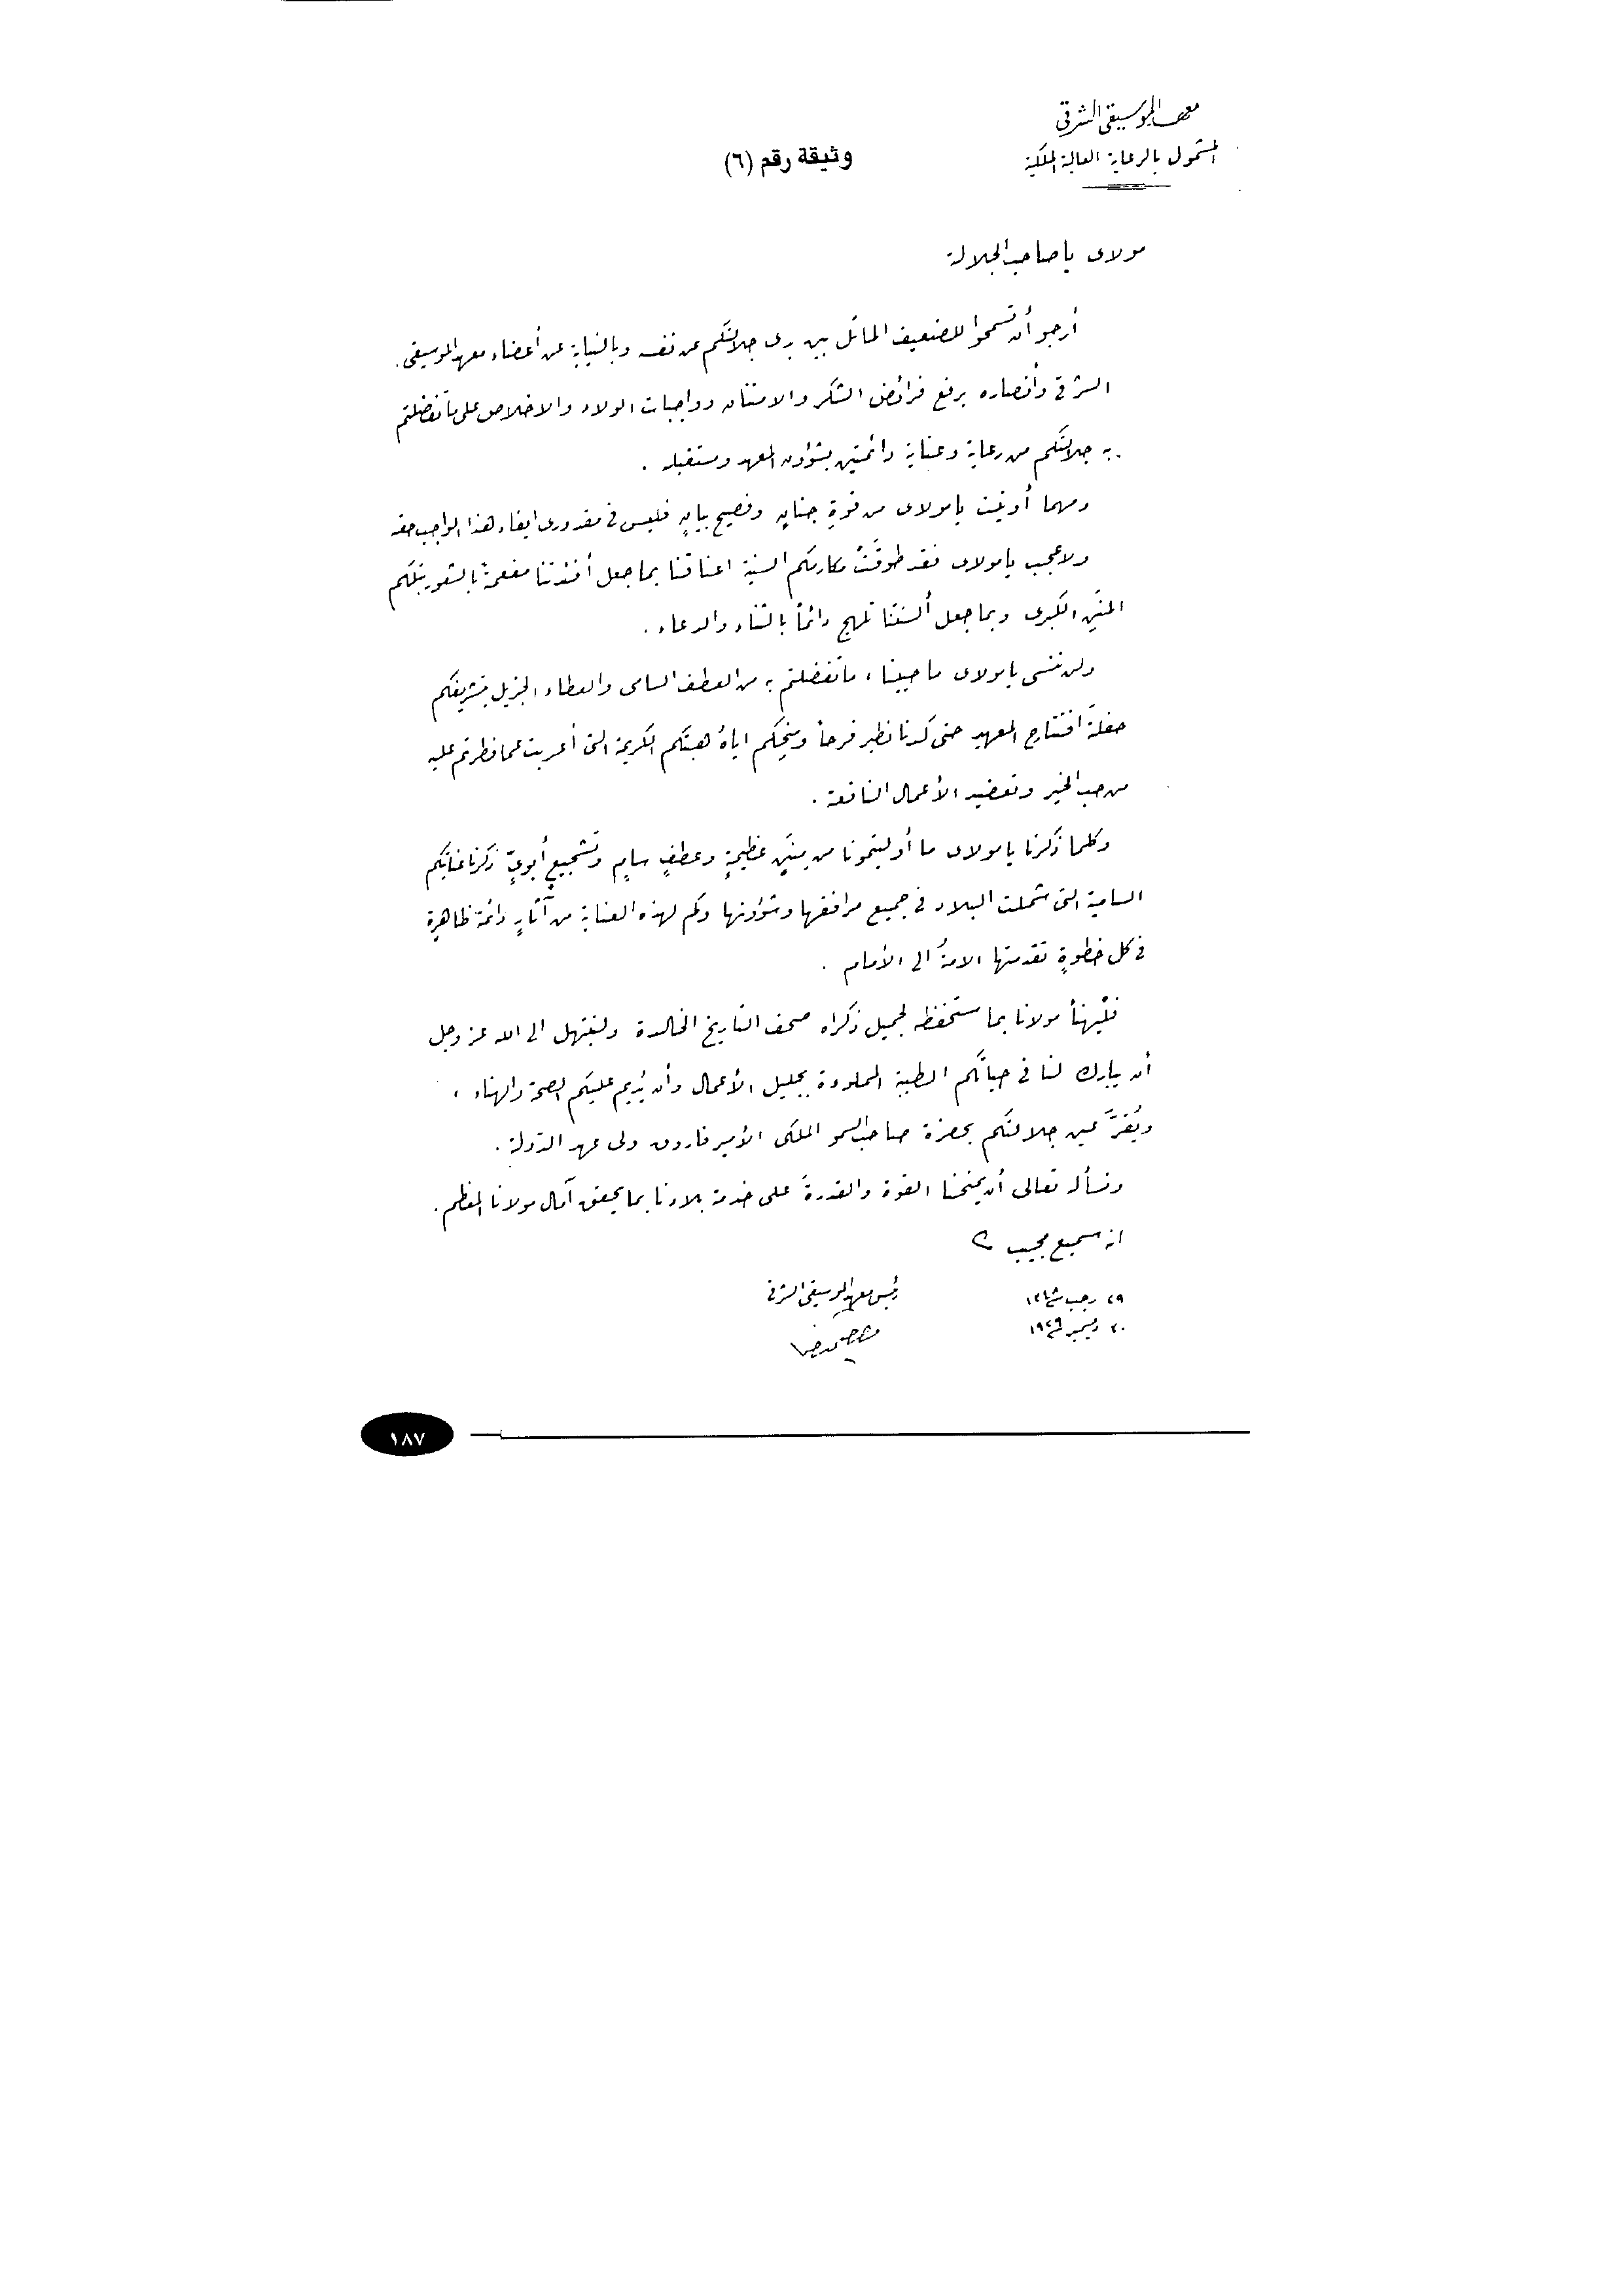 معهد الموسيقى الشرقي
المشمول بالرعاية العالية الملكية
وثيقة رقم (٦)
مولاى يا صاحب الجلالة
أرجو أن تسمحوا للضعيف الماثل بين يدى جلالتكم عن نفسه وبالنيابة عن أعضاء معهد الموسيقى
الشرقى وأنصاره برفع فرائض الشكر والامتنان وواجبات الولاء والاخلاص على ما تفضلتم
به جلالتكم من رعاية وعناية دائمتين بشؤون المعهد ومستقبله .
ومهما أوتيت يا مولاى من قوةِ جنانٍ وفصيح بيانٍ فليس فى مقدورى ايفاء هذا الواجب حقه
ولا عجب يا مولاى فقد طوقَتْ مكارمكم السنية اعناقنا بما جعل أفئدتنا مفعمةً بالشعور بتلكم
المنَنِ الكبرى وبما جعل ألسنتنا تلهج دائماً بالثناء والدعاء .
ولن ننسى يا مولاى ما حيينا ، ما تفضلتم به من العطف السامى والعطاء الجزيل بتشريفكم
حفلةَ افتتاح المعهد حتى كدنا نطير فرحاً ومنحكم اياهُ هبتكم الكريمة التى أعربت عما فطرتم عليه
من حب الخير وتعضيد الأعمال النافعة .
وكلما ذكرنا يا مولاى ما أوليتمونا من مِننٍ عظيمةٍ وعطفٍ سامٍ وتشجيعٍ أبوىٍّ ذكرنا عنايتكم
السامية التى شملت البلاد فى جميع مرافقها وشؤونها وكم لهذه العناية من آثارٍ دائمة ظاهرةٍ
فى كل خطوةٍ تقدمتها الامةُ الى الأمام .
فلْيهنأ مولانا بما ستحفظه لجميل ذكراه صحف التاريخ الخالدة ولنبتهل الى الله عز وجل
أن يبارك لنا فى حياتكم الطيبة المملوءة بجليل الأعمال وأن يُديم عليكم الصحة والهناء ،
ويُقرَّ عين جلالتكم بحضرة صاحب السمو الملكى الأمير فاروق ولى عهد الدولة .
ونسأله تعالى أن يمنحنا القوة والقدرةَ على خدمة بلادنا بما يحقق آمال مولانا المعظم .
انه سميع مجيب
٢٩ رجب سنة ١٣٤٨
رئيس معهد الموسيقى الشرقى
٣٠ ديسمبر سنة ١٩٢٩
١٨٧